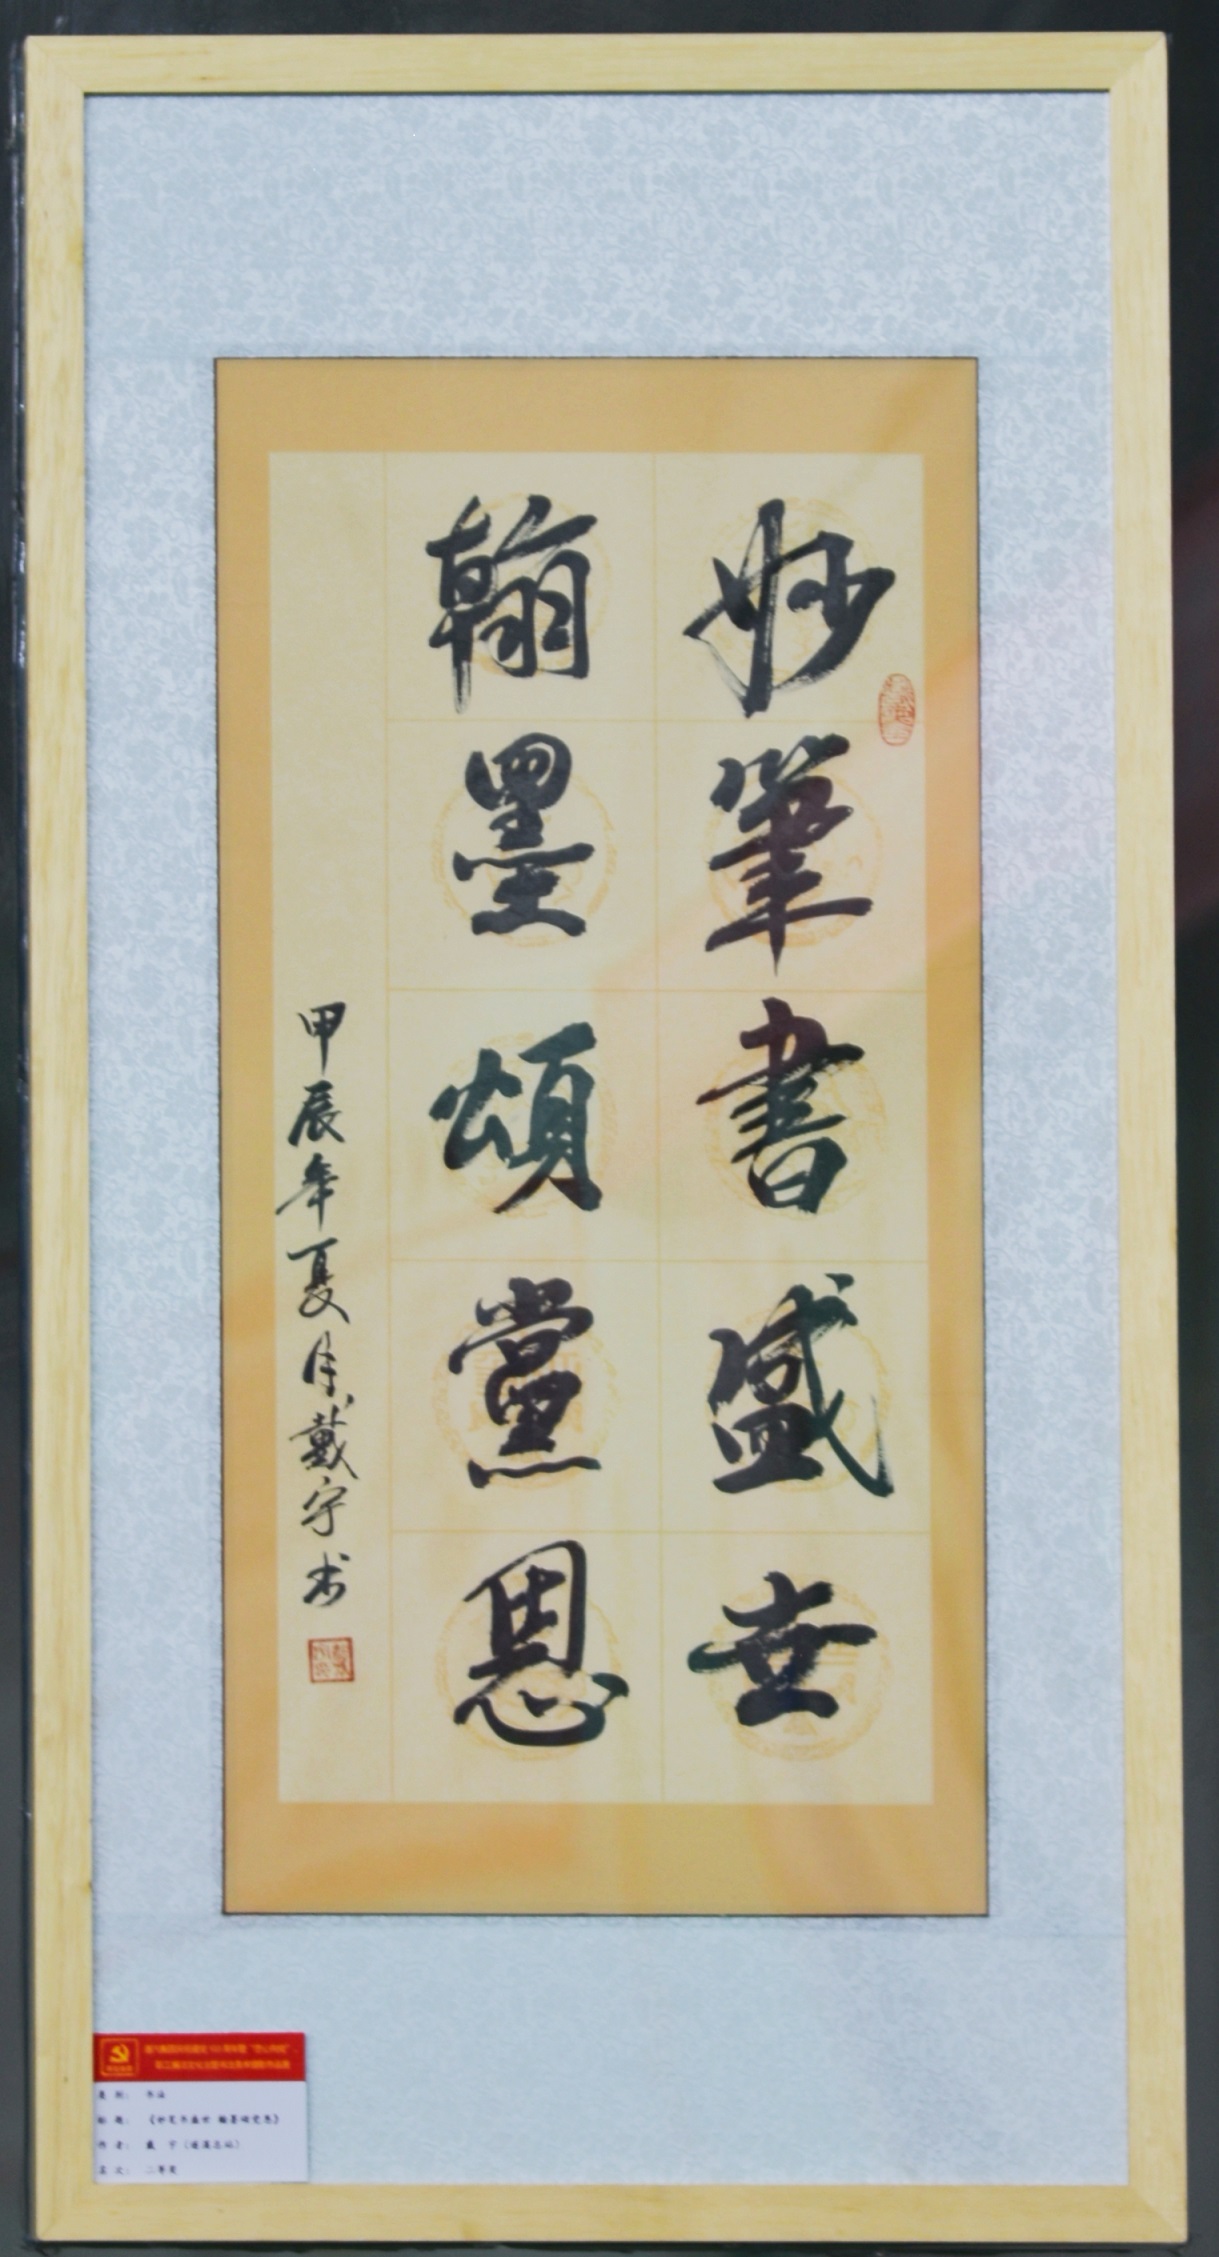 妙筆書盛世
翰墨頌黨恩
甲辰年夏月戴宇书
类别： 书法
标题： 《妙笔书盛世 翰墨颂党恩》
作者： 戴 宇
二等奖